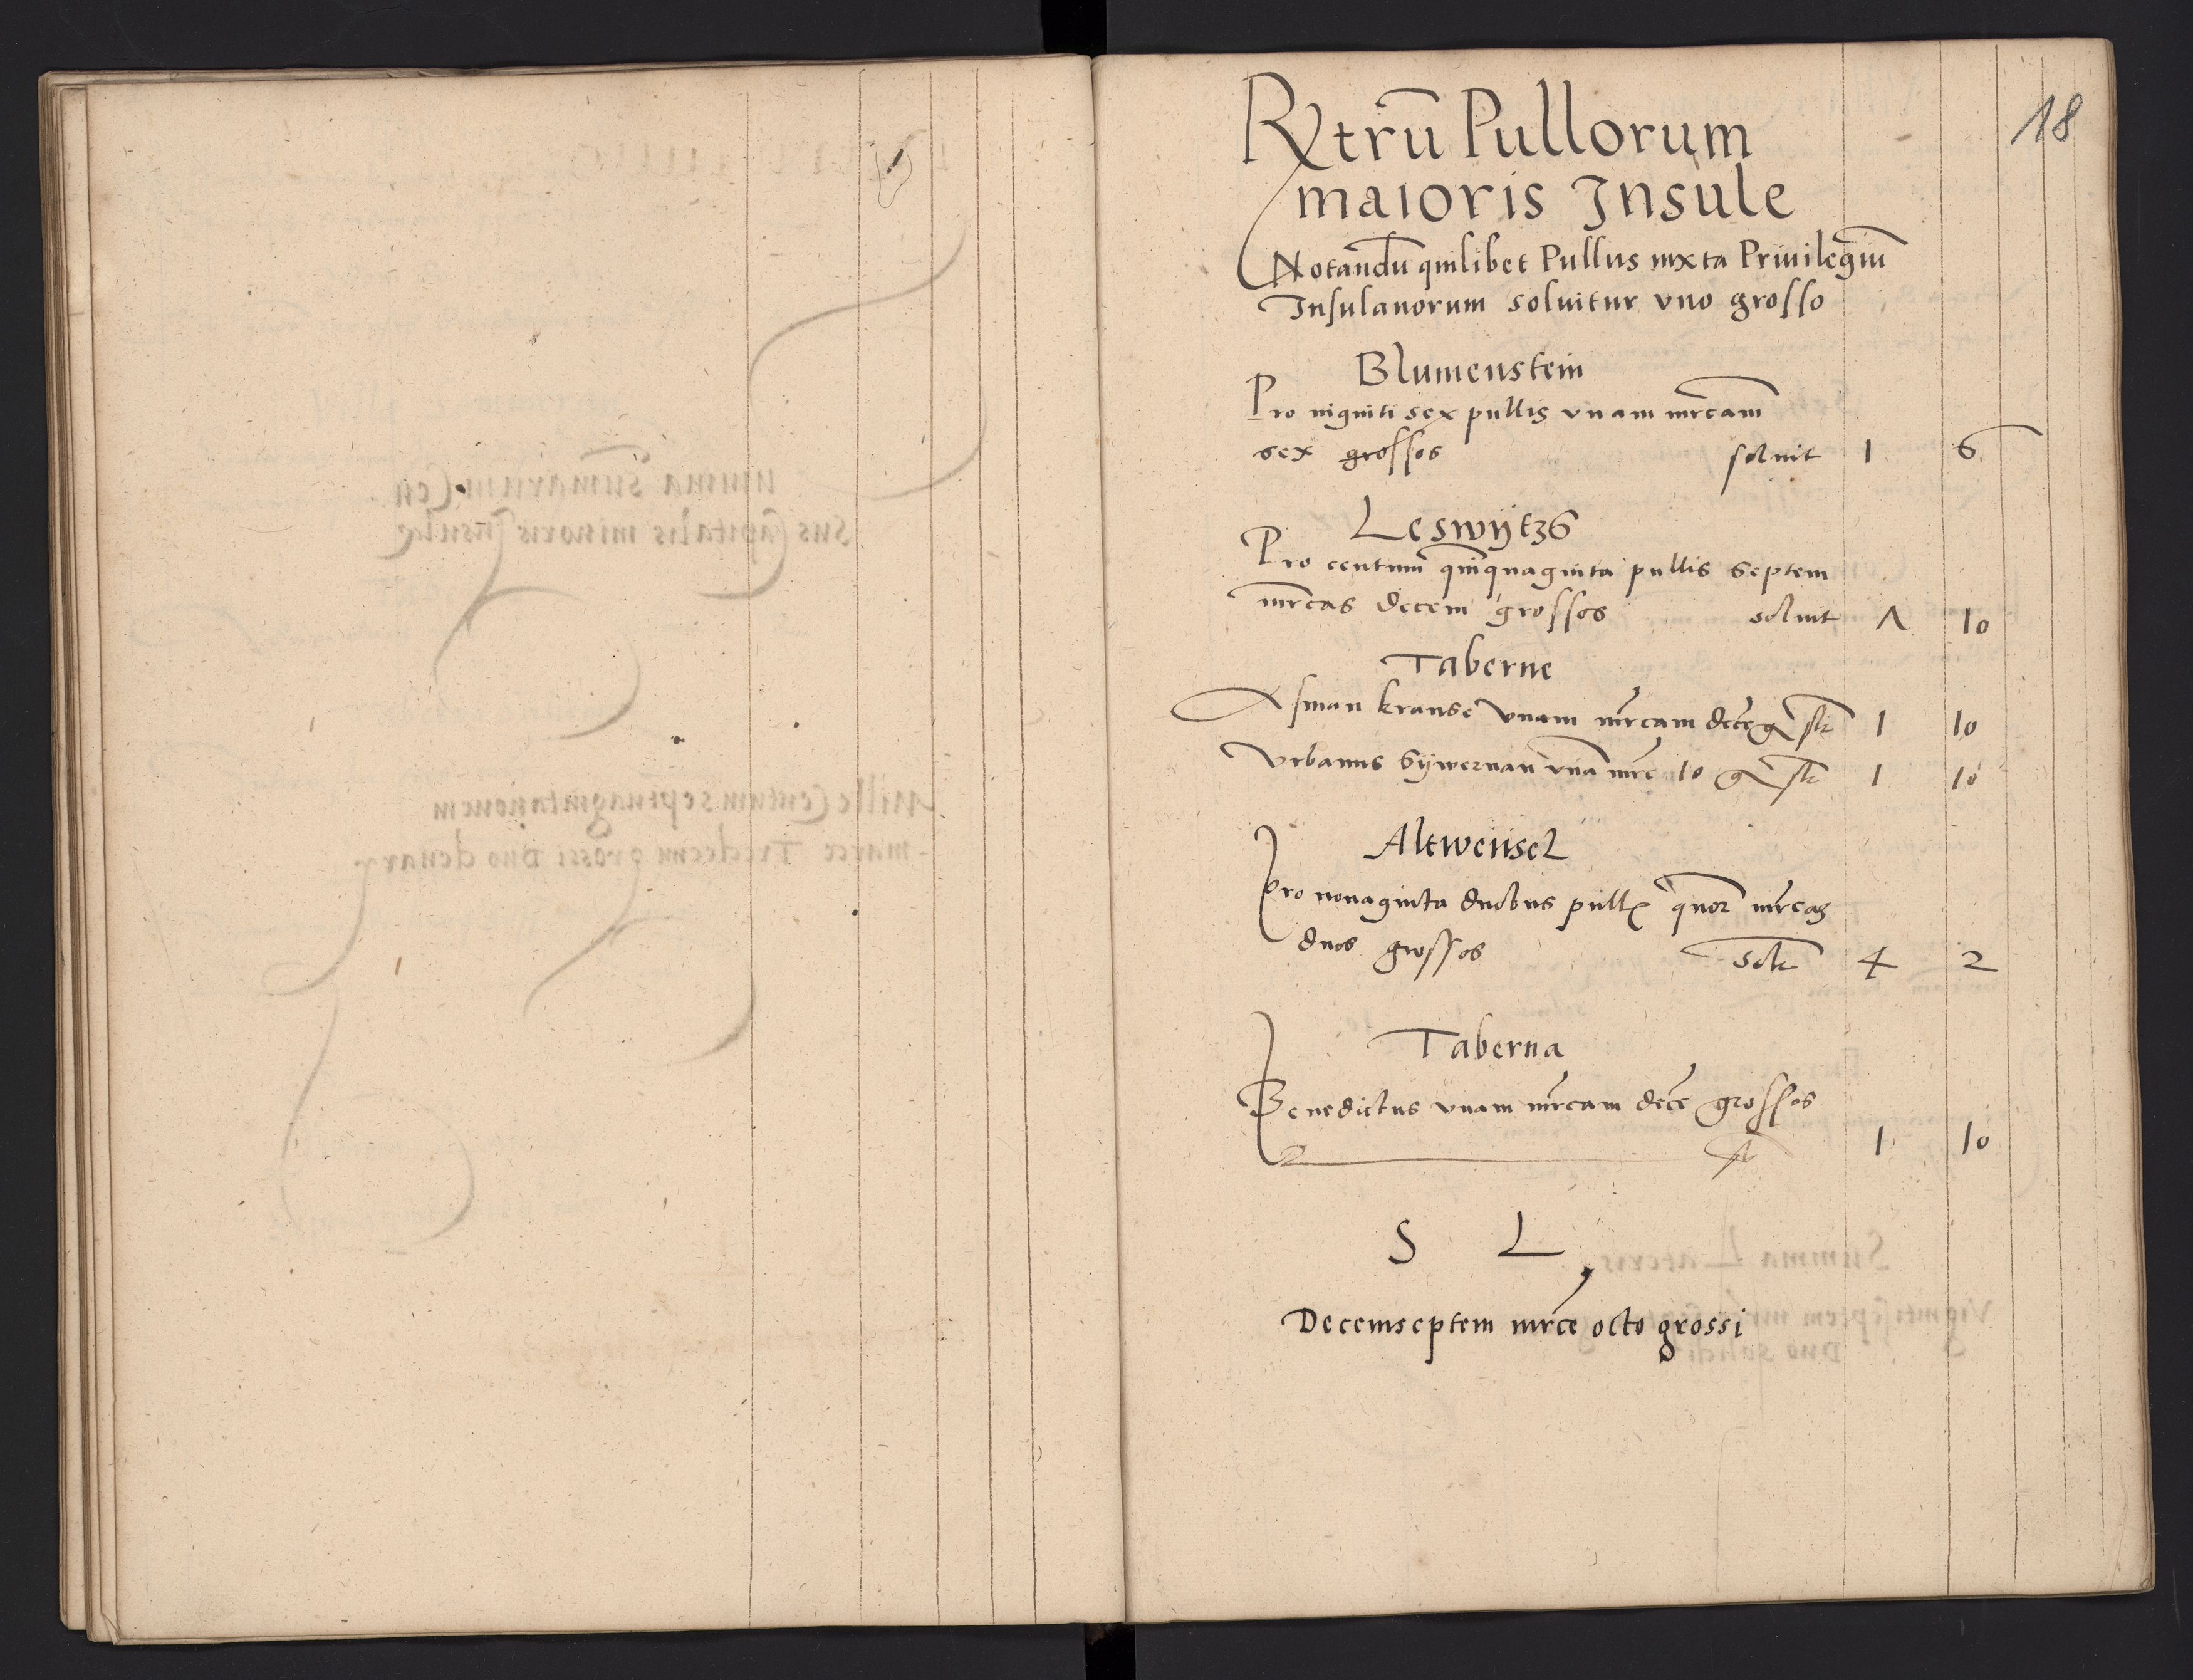 18
Rxtrū Pullorum
maioris Insule
Notandū quilibet Pullus iuxta Priuilegiū
Insulanorum soluitur vno grosso
Blumenstein
Pro uiginti sex pullis vnam mrcam
sex grossos soluit 1 6
Leswijtz
Pro centum quinquaginta pullis septem
mrcas decem grossos soluit Λ 10
Taberne
Asman krause vnam mrcam decē gͬ slt 1 10
Vrbanus Sywernan vnā mrc 10 gͬ slt 1 10
Altweiisel
Pro nonaginta duobus pull quor mrcas
duos grossos solt 4 2
Taberna
Benedictus vnam mrcam decē grossos
slt 1 10
S L
Decemseptem mrce octo grossi